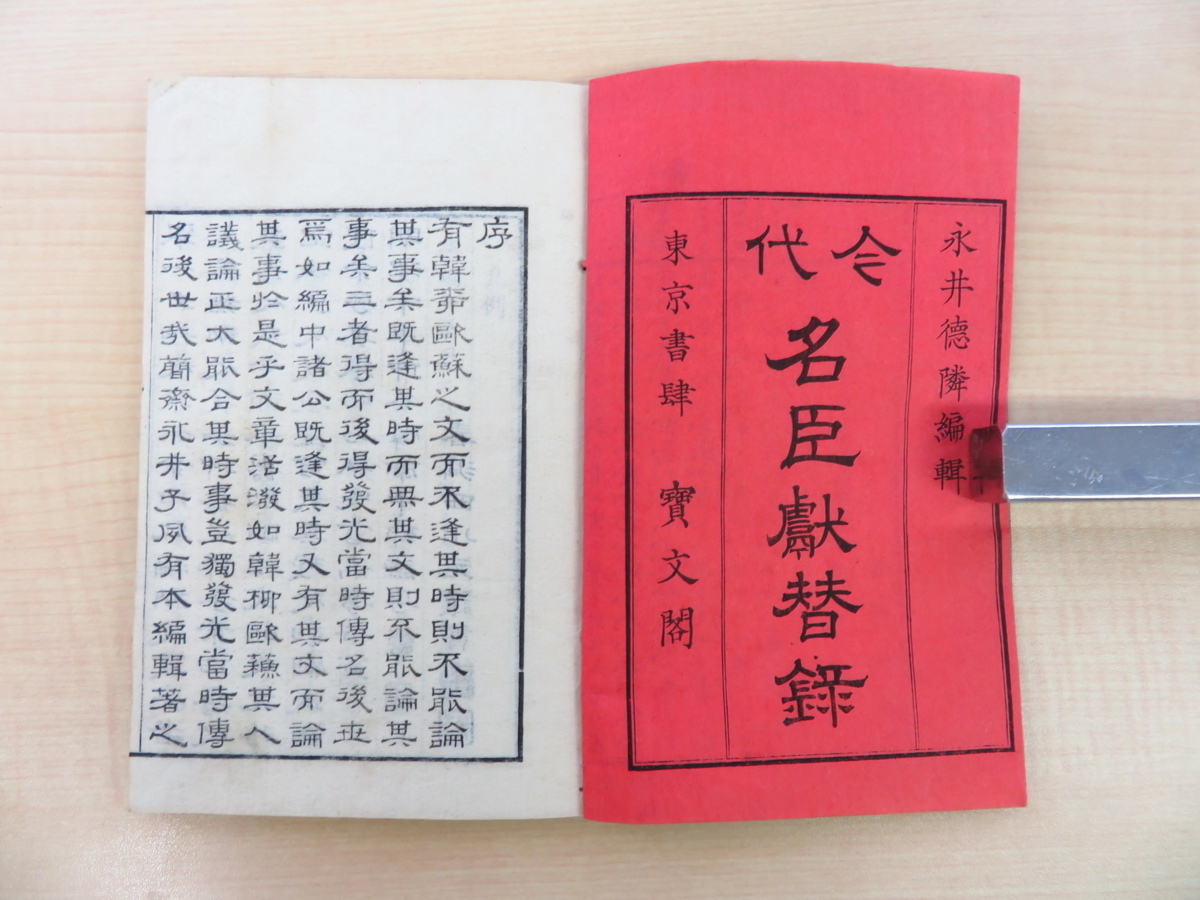 永井德隣編輯
今代
名臣獻替錄
東京書肆 寶文閣
序
有韓桺歐蘇之文而不逢其時則不能論
其事矣既逢其時而無其文則不能論其
事矣三者得而後得發光當時傳名後世
焉如編中諸公既逢其時又有其文而論
其事於是乎文章活潑如韓柳歐蘓其人
議論正大能合其時事豈獨發光當時傳
名後世哉簡齋永井子夙有本編輯著之